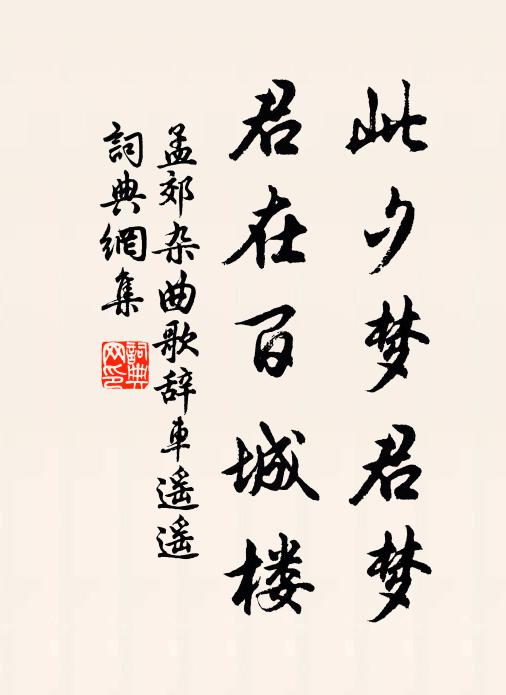 此夕梦君梦
君在百城楼
孟郊杂曲歌辞車遥遥
詞典網集
詞典网印